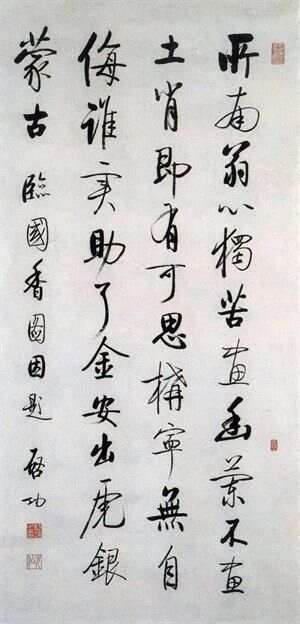 所南翁心獨苦畫幽蘭不畫
土肖即有可思構寧無自
侮誰實助了金安出虎銀
蒙古 臨國香圖因題 啓功